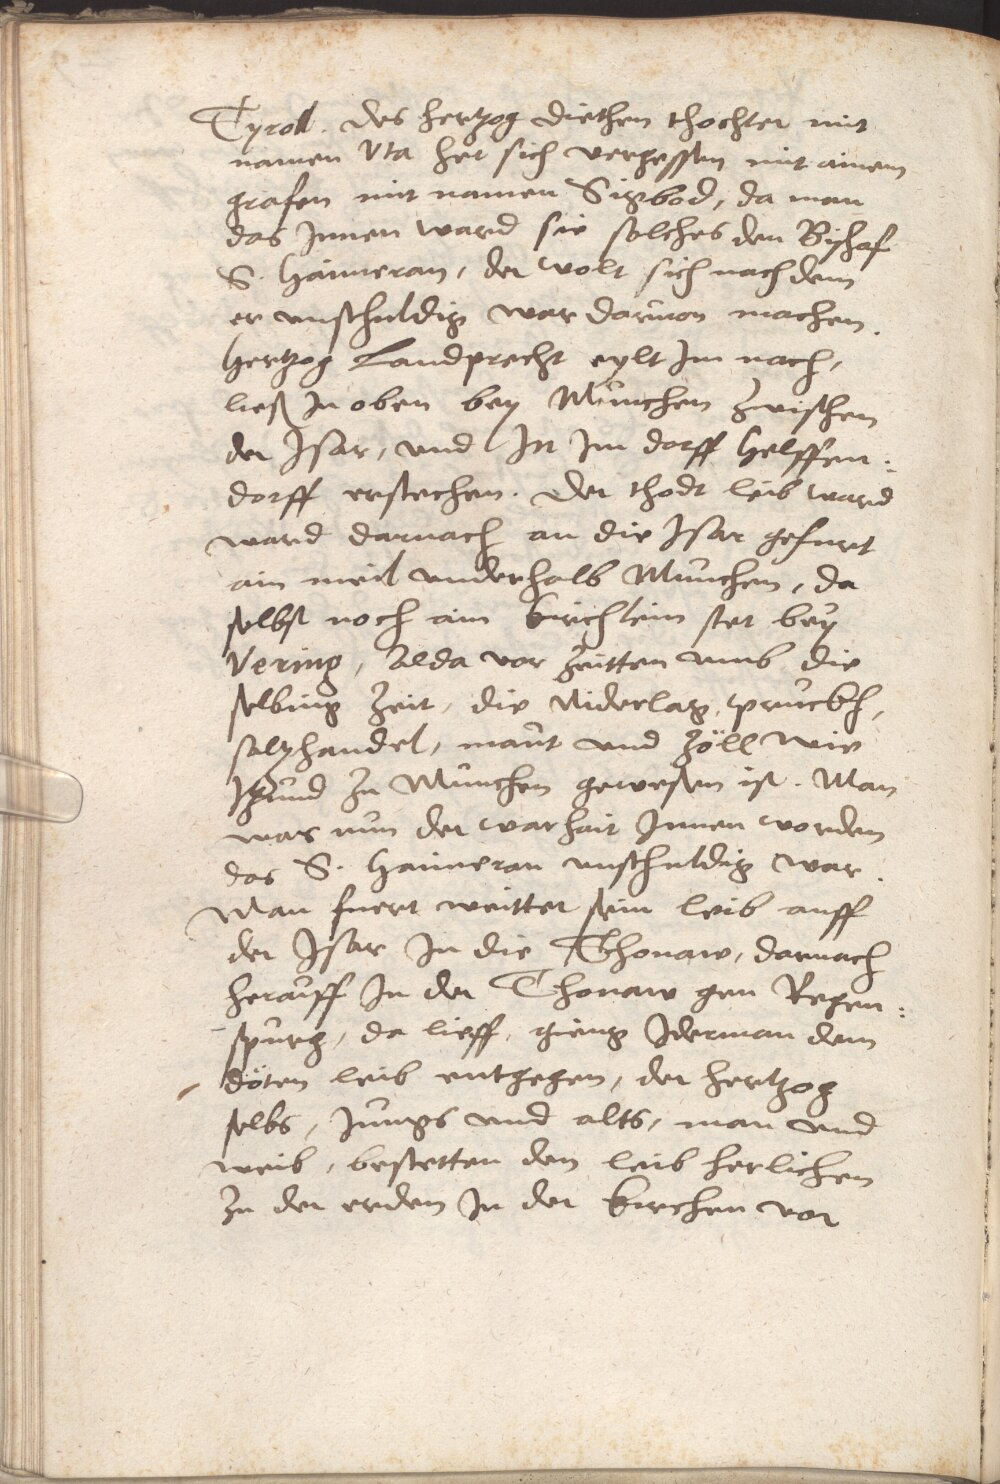 Tyroll. des hertzog Diethen thochter mit
namen Vta het sich vergessen mit ainem
grafen mit namen Sigbod, da man
das Innen ward sie solches den Bischaf
S. Haimeran, der wolt sich nach dem
er unschuldig war darvon machen.
Hertzog Landprecht eylt Im nach,
ließ In oben bey München zwischen
der Isar, und In Im dorff Helffen:
dorff erstechen. Der thodt leib ward
ward darnach an die Isar gefurt
ain meil underhalb München, da
selbst noch ain kirchlein stet bey
Vering, Alda vor Zeitten umb die
selbing Zeit, die Niderlag, pruckh,
saltzhandel, maut und Zöll wie
Itzund Zu München gewesen ist. Man
was nun der warhait Innen worden
das S. Haimeran unschuldig war.
Man fuert weitter sein leib auff
der Isar In die Thonaw, darnach
herauff In der Thonaw gen Regen:
spurg, da lieff, gieng Iderman dem
döten leib entgegen, der hertzog
selbs, Jungs und alts, man und
weib, bestetten den leib herlichen
Zu der erden In der kirchen vor